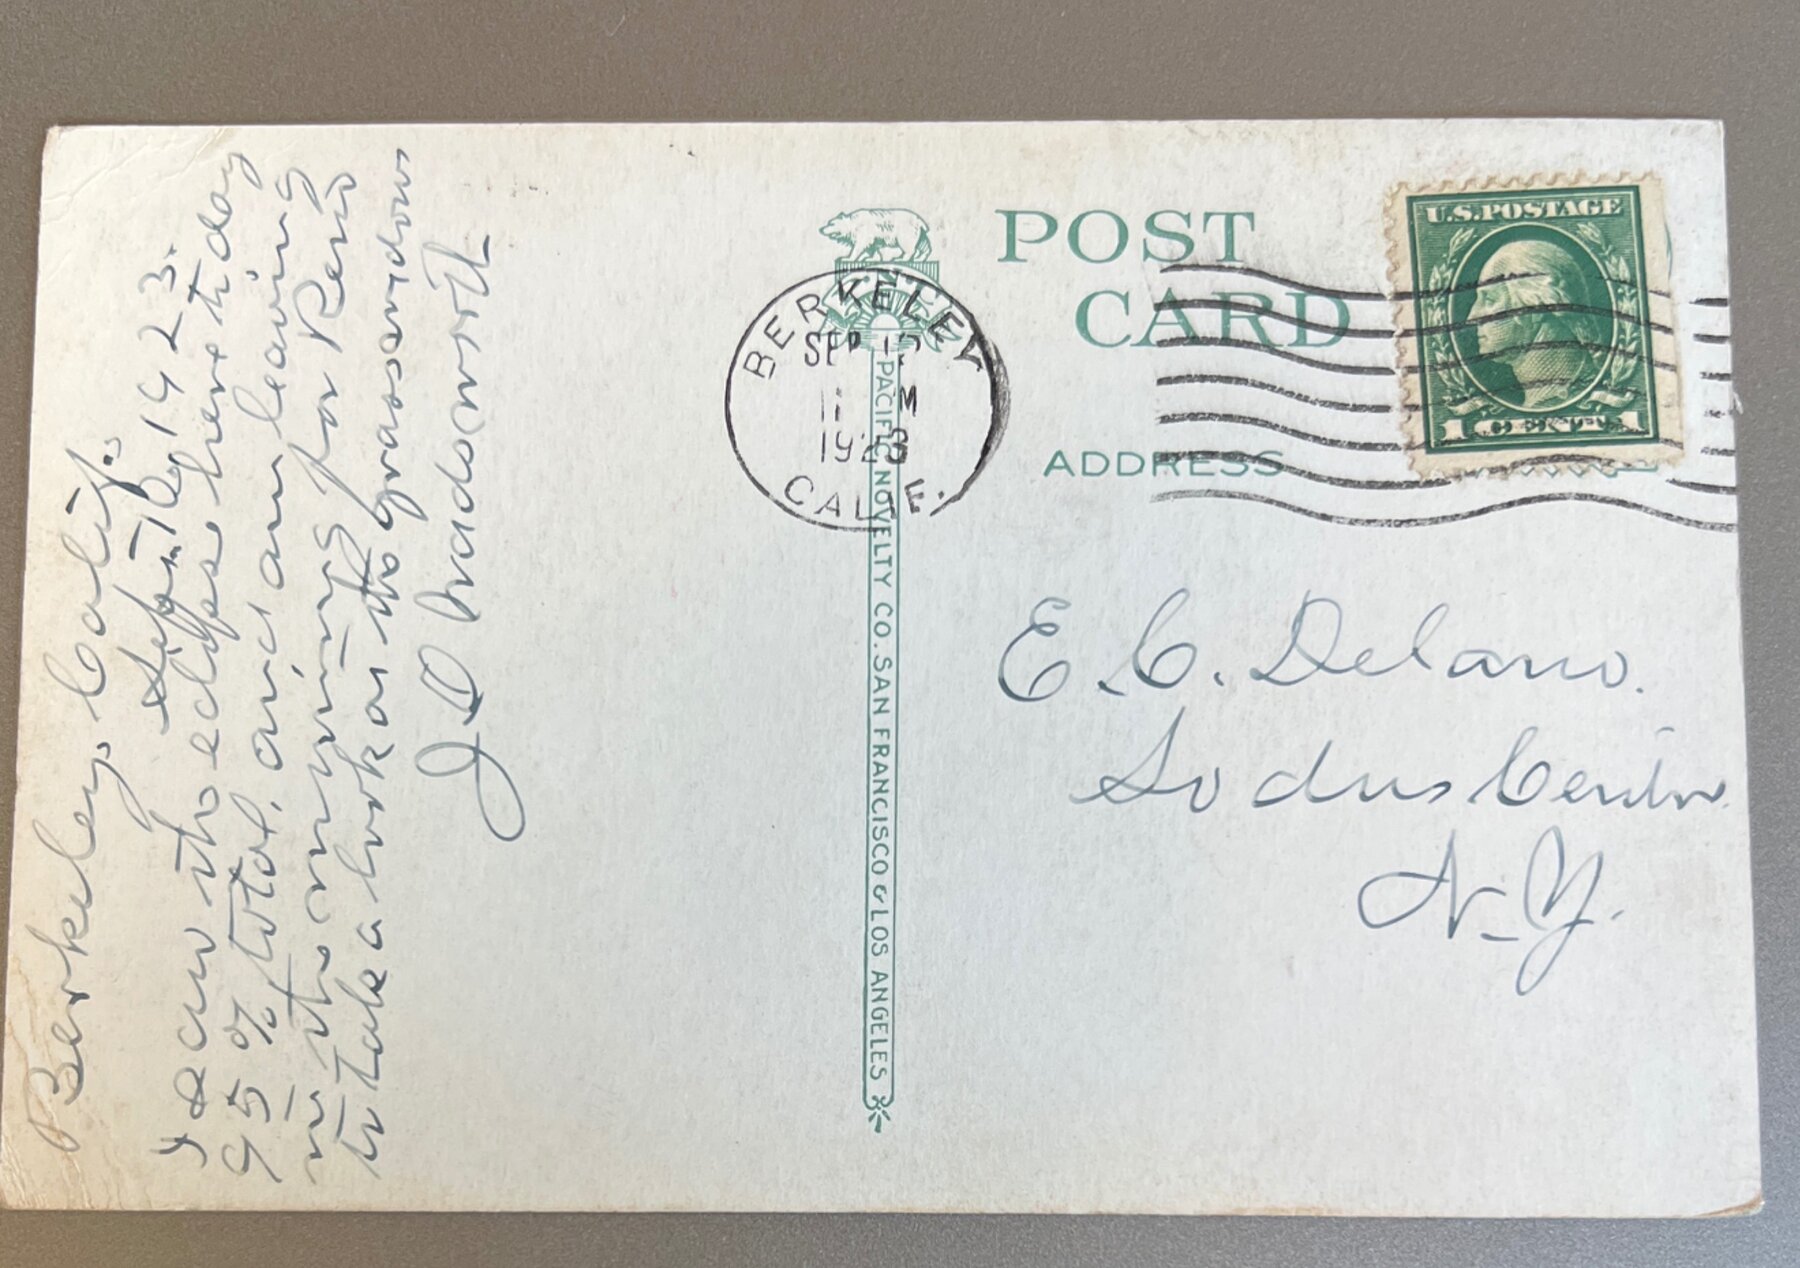 Berkeley. Calif.
Sept. 10, 1923.
I saw the eclipse here today
95% total, and am leaving
in the morning for Reno
to take a look at the grasswidows
J O Wadsworth
POST
CARD
ADDRESS
BERKELEY
SEP 1
M
1923
CALIF.
U.S.POSTAGE
1 CENT 1
PACIFIC NOVELTY CO. SAN FRANCISCO & LOS ANGELES
E. C. Delano.
Sodus Center
N-Y.